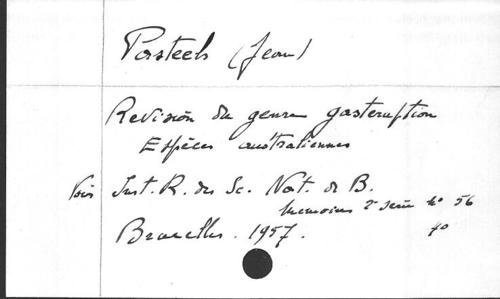 Pasteels (Jean)
Revision du genre gasteruption
Espèces australiennes
Voir Inst. R. des Sc. Nat. de B.
Memoires 2e serie No 56
Bruxelles. 1957.